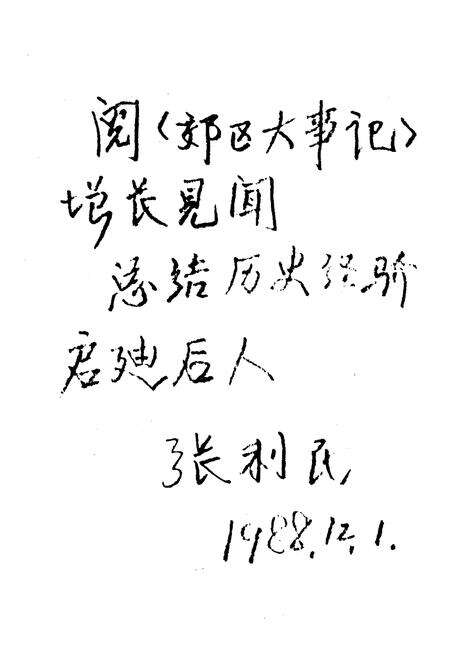 阅〈郊区大事记〉
增长见闻
总结历史经验
启迪后人
张利民
1988.12.1.